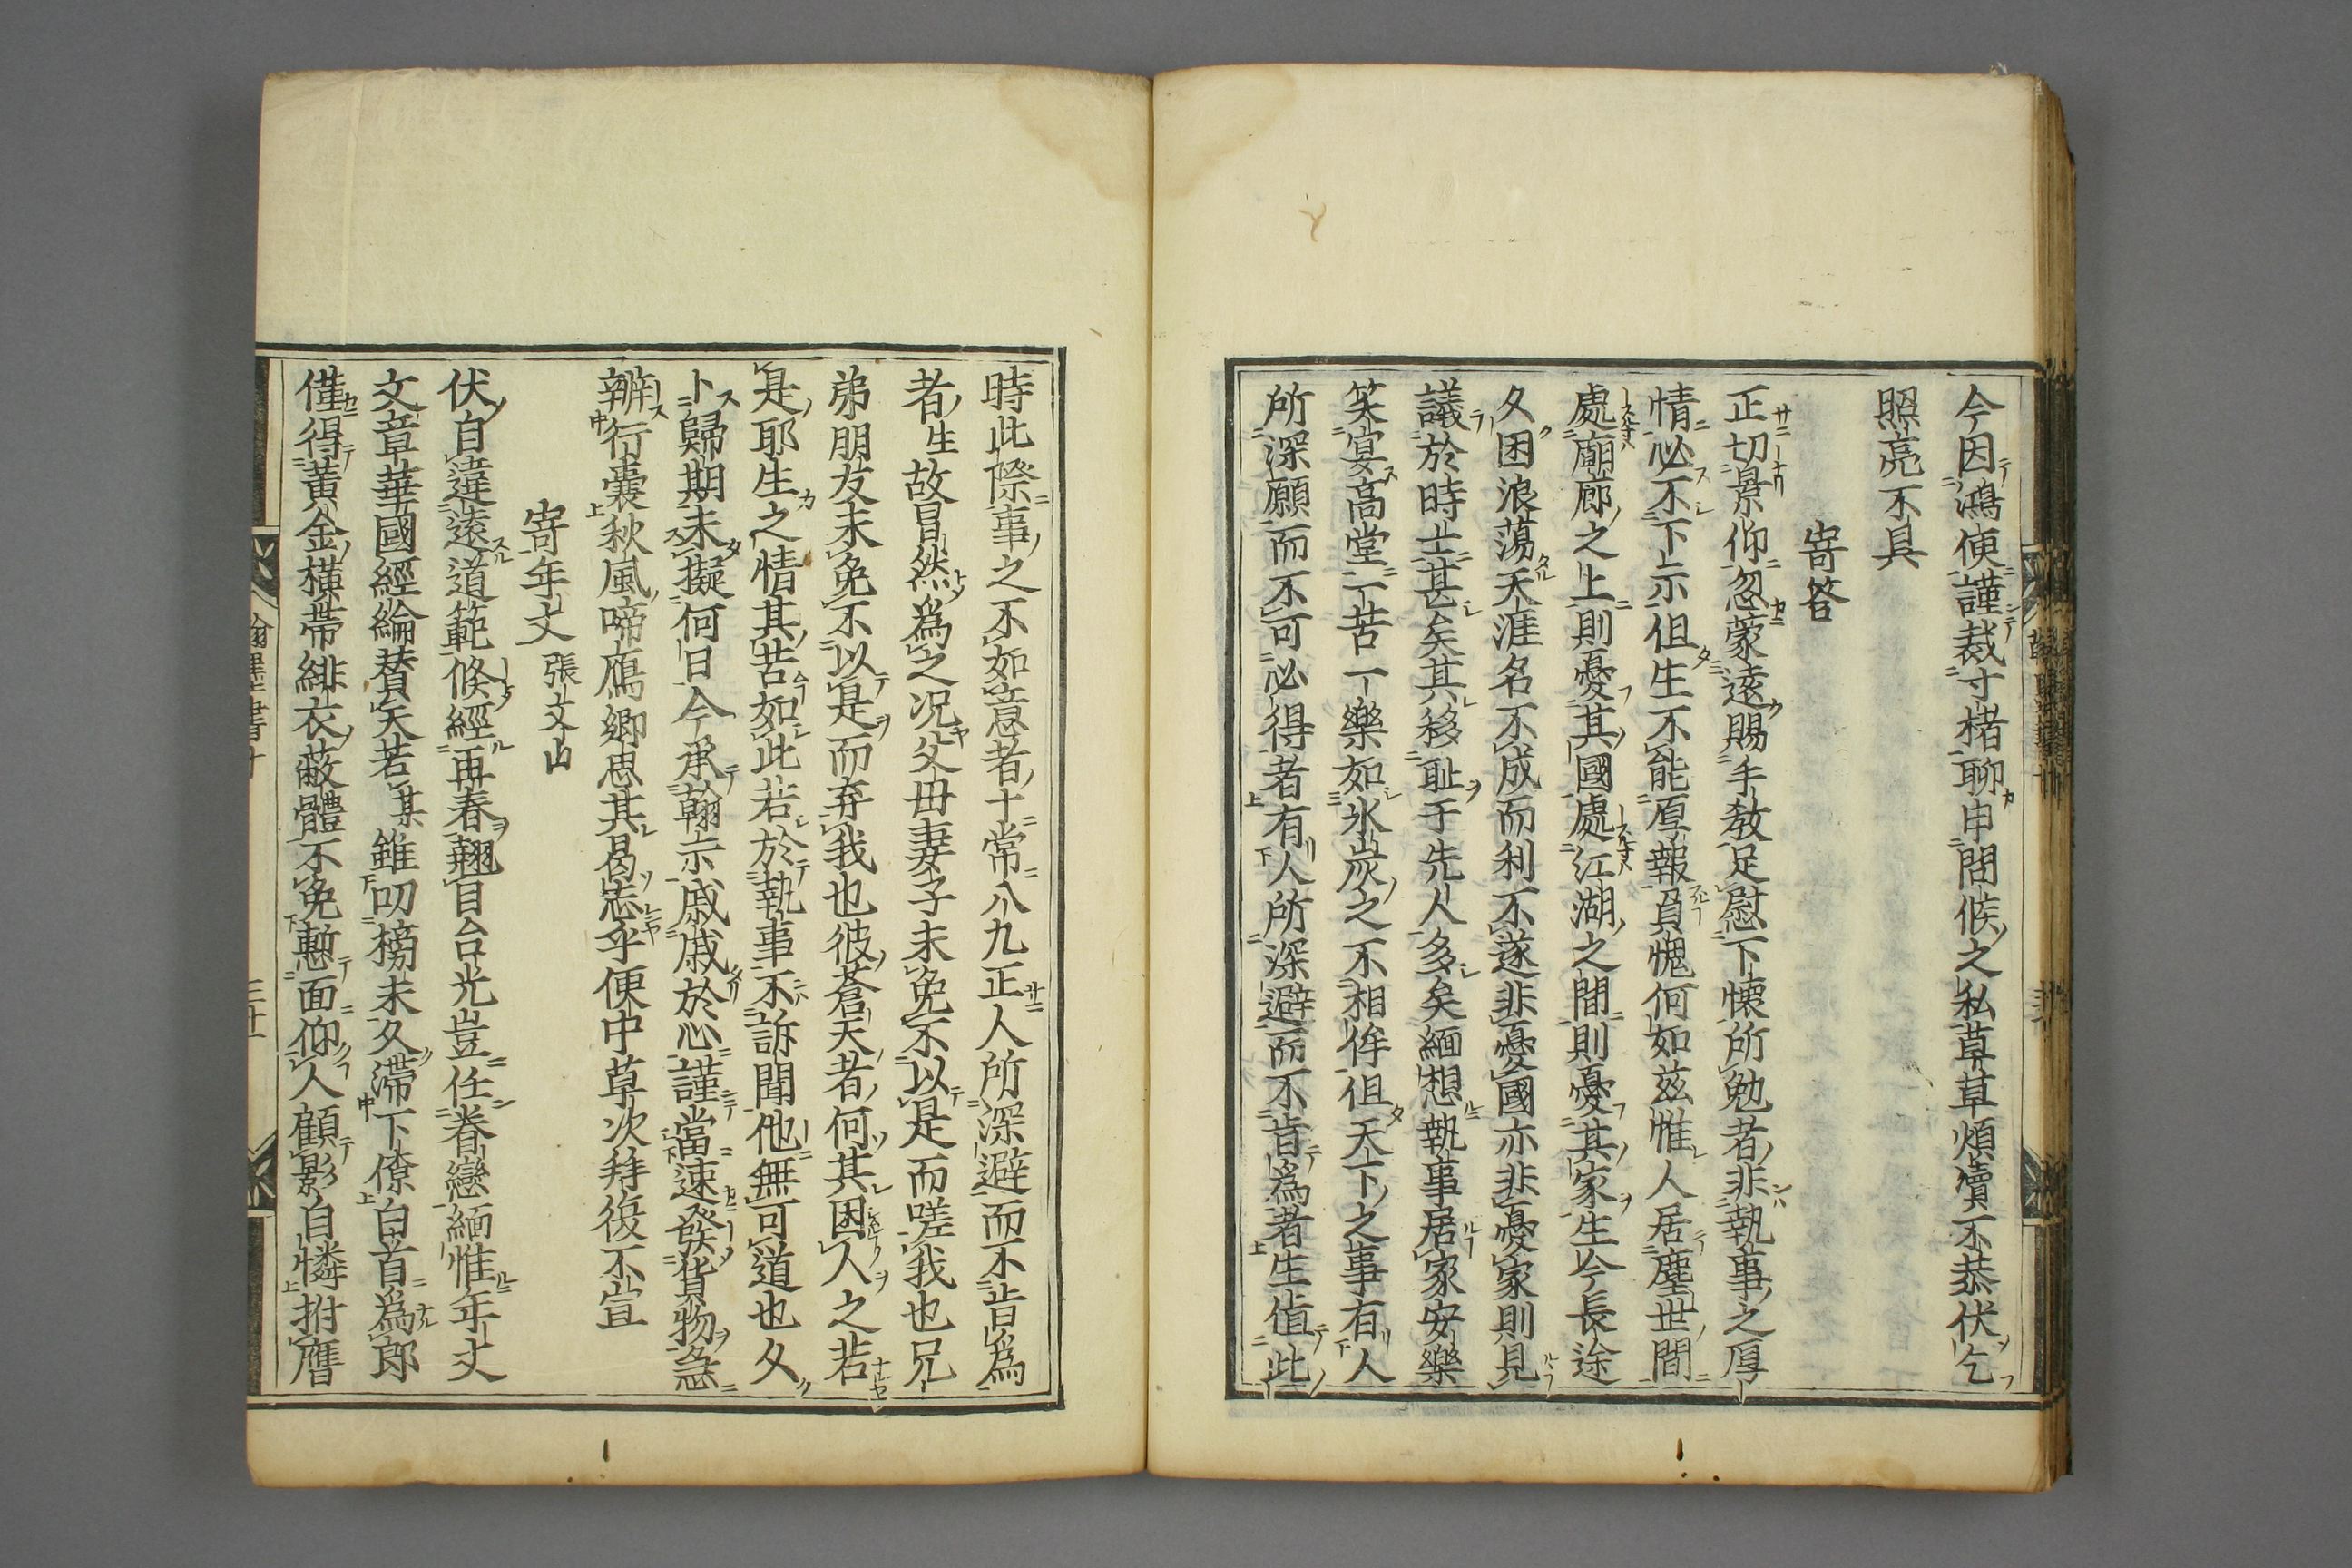 今因鴻便謹裁寸楮聊申問候之私草草煩瀆不恭伏乞
照亮不具
寄答
正切景仰忽蒙遠賜手教足慰下懐所勉者非執事之厚
情必不下示但生不能厚報負愧何如茲惟人居塵世間
處廟廊之上則憂其國處江湖之間則憂其家生今長途
久困浪蕩天涯名不成而利不遂非憂國亦非憂家則見
議於時士甚矣其移耻于先人多矣緬想執事居家安樂
笑宴高堂一苦一樂如氷炭之不相侔但天下之事有人
所深願而不可必得者有人所深避而不肯為者生値此
時此際事之不如意者十常八九正人所深避而不肯為
者生故冒然為之況父母妻子未免不以是而嗟我也兄
弟朋友未免不以是而弃我也彼蒼天者何其困人之若
是耶生之情其苦如此若於執事不訴聞他無可道也久
卜歸期未擬何日今承翰示戚戚於心謹當速發貨物急
辦行囊秋風啼鴈郷思其曷忘乎便中草次拜復不宣
寄年丈 張文山
伏自違遠道範倐經再春翹目台光豈任眷戀緬惟年丈
文章華國經綸賛天若某雖叨榜未久滞下僚白首為郎
僅得黄金横帶緋衣蔽體不免慙面仰人顧影自憐拊膺